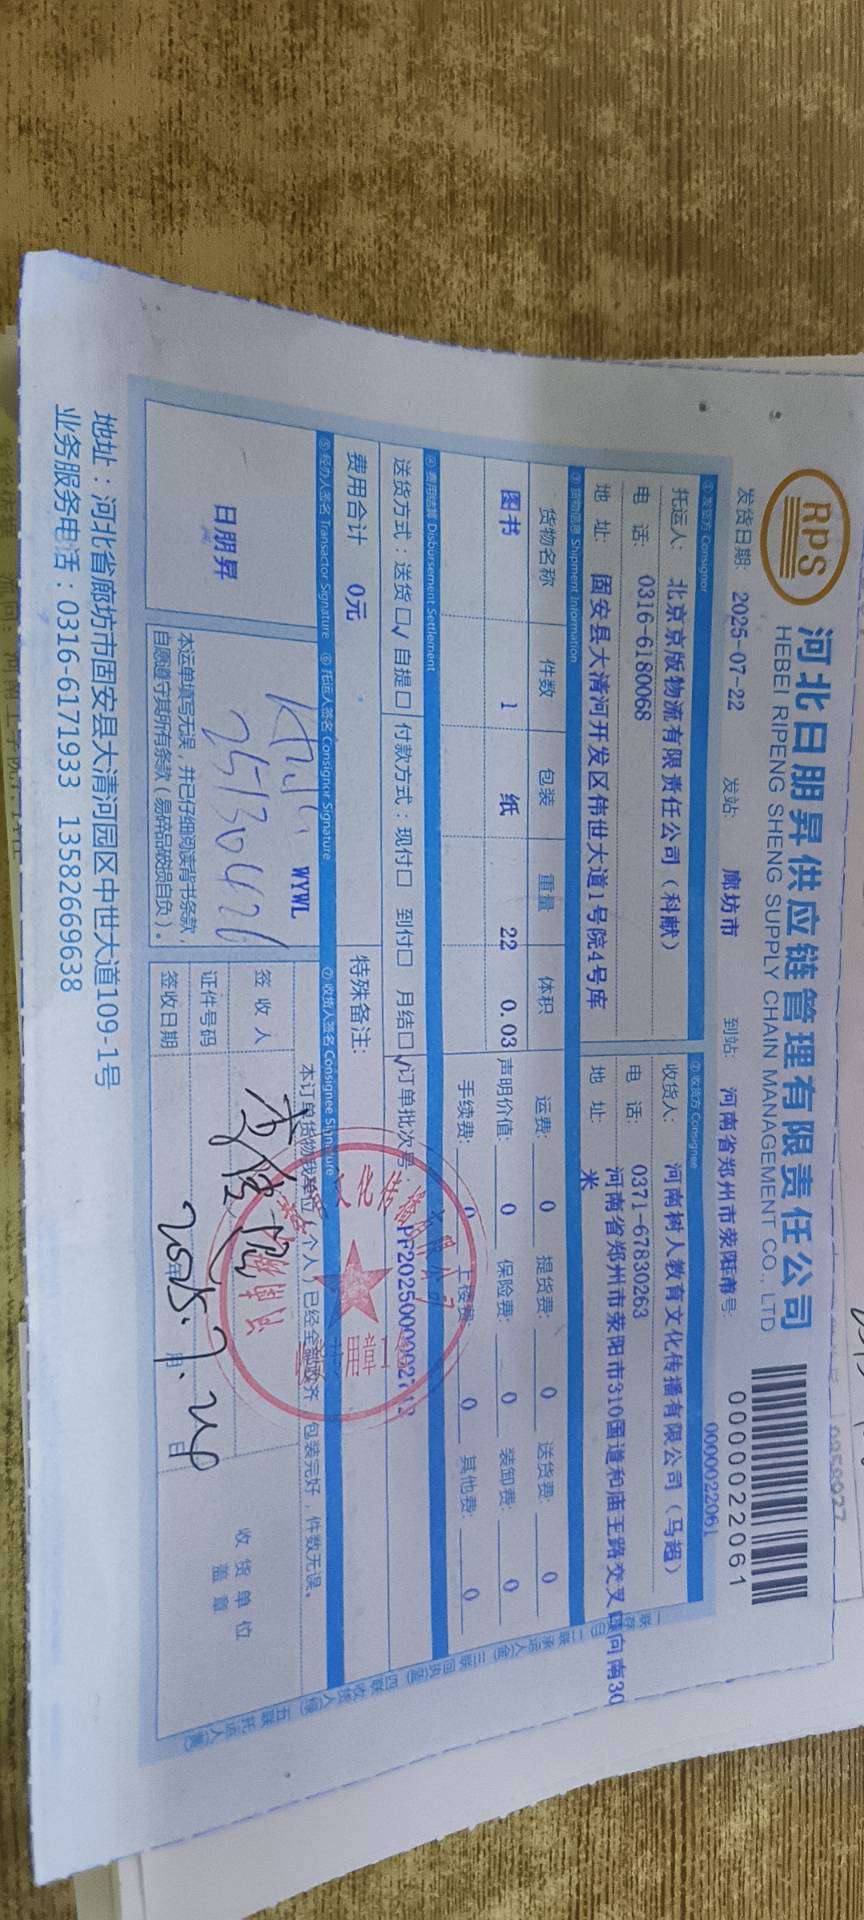 RPS
河北日朋昇供应链管理有限责任公司
HEBEI RIPENG SHENG SUPPLY CHAIN MANAGEMENT CO., LTD
0000022061
发货日期: 2025-07-22 发站: 廊坊市 到站: 河南省郑州市荥阳市 号: 0000022061
① 发货方 Consignor
② 收货方 Consignee
托运人: 北京京版物流有限责任公司(科献)
收货人: 河南树人教育文化传播有限公司(马超)
电 话: 0316-6180068
电 话: 0371-67830263
地 址: 固安县大清河开发区伟世大道1号院4号库
地 址: 河南省郑州市荥阳市310国道和庙王路交叉口向南30
米
③ 货物信息 Shipment Information
货物名称 件数 包装 重量 体积
图书 1 纸 22 0.03
运费: 0 提货费: 0 送货费: 0
声明价值: 0 保险费: 0 装卸费: 0
手续费: 0 上楼费: 0 其他费: 0
④ 费用结算 Disbursement Settlement
送货方式: 送货□√ 自提□ 付款方式: 现付□ 到付□ 月结□√ 订单批次号
费用合计 0元
特殊备注:
⑤ 经办人签名 Transactor Signature ⑥ 托运人签名 Consignor Signature ⑦ 收货人签名 Consignee Signature
日朋昇
WYWL
本运单填写无误,并已仔细阅读背书条款,
自愿遵守其所有条款(易碎品破损自负)。
本订单货物我单位(个人)已经全部收齐 包装完好,件数无误。
签 收 人
证件号码
签收日期 2025.7.24
年 月 日
收货单位
盖章
地址:河北省廊坊市固安县大清河园区中世大道109-1号
业务服务电话:0316-6171933 13582669638